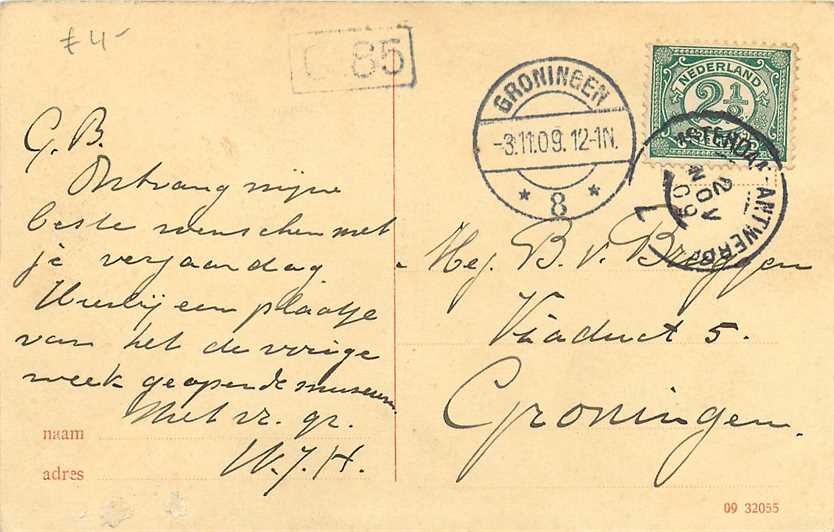 £ 4-
85
G. B.
Ontvang mijne
beste wenschen met
je verjaardag
Hierbij een plaatje
van het de vorige
week geopende museum
Met vr. gr.
W. J. H.
naam
adres
GRONINGEN
-3.11.09. 12-1N.
* 8 *
NEDERLAND
2½
ANTWERP
2 NOV 09
Mej. B. v. Bruggen
Viaduct 5.
Groningen.
09 32055